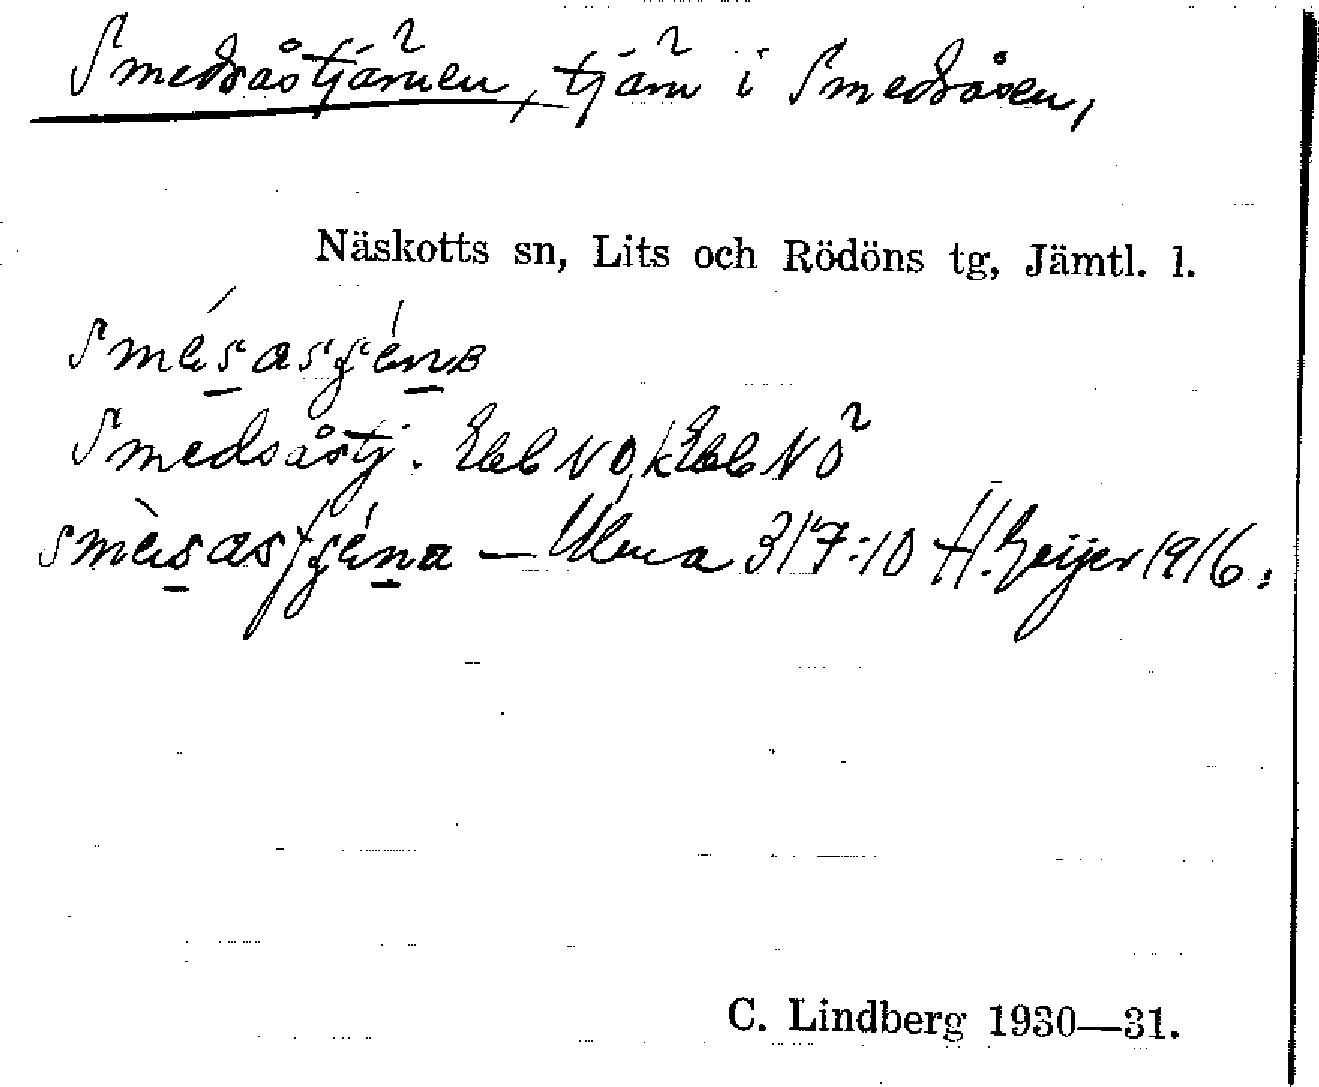 Smedsåstjärnen, tjärn i Smedsåsen,
Näskotts sn, Lits och Rödöns tg, Jämtl. l.
Smedsåstj. Ebl NO, kEbl NÖ
Ulma 317:10 H. Geijer 1916.
C. Lindberg 1930—31.